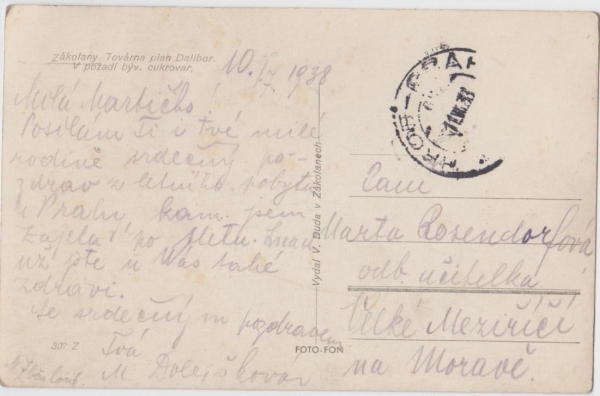 Zákolany. Továrna pian Dalibor.
V pozadí býv. cukrovar.
1938
Milá Martičko!
Posílám Ti i tvé milé
rodině srdečný po-
zdrav z letního pobytu
u Prahy, kam jsem
zajela po sletu. Snad
už jste u Vás také
zdrávi.
Se srdečným pozdravem
Tvá
M Dolejškova
307 Z
Vydal V. Duda v Zákolanech
FOTO-FON
Paní
Marta Rosendorfová
odb. učitelka
Velké Meziříčí
na Moravě.